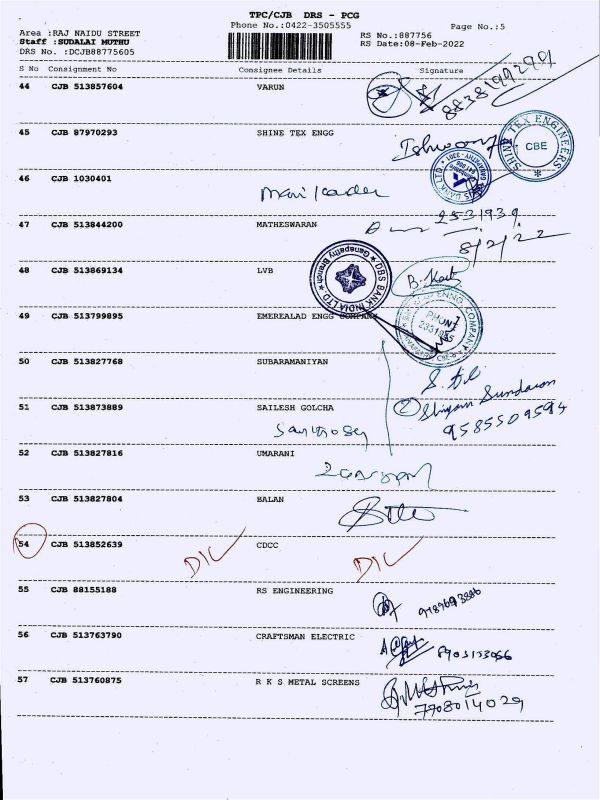 TPC/CJB DRS - PCG
Phone No.:0422-3505555
Page No.:5
Area :RAJ NAIDU STREET
Staff :SUDALAI MUTHU
DRS No. :DCJB88775605
RS No.:887756
RS Date:08-Feb-2022
S No Consignment No Consignee Details Signature
44 CJB 513857604 VARUN
8838199299
45 CJB 87970293 SHINE TEX ENGG
SHINE TEX ENGINEERS
CBE
46 CJB 1030401
47 CJB 513844200 MATHESWARAN
2531939
8/2/22
48 CJB 513869134 LVB
DBS BANK INDIA LTD
Ganapathy Branch
49 CJB 513799895 EMEREALAD ENGG COMPANY
50 CJB 513827768 SUBARAMANIYAN
51 CJB 513873889 SAILESH GOLCHA
② Shyam Sundaram
9585509594
52 CJB 513827816 UMARANI
53 CJB 513827804 BALAN
54 CJB 513852639 CDCC
D/C D/C
55 CJB 88155188 RS ENGINEERING
56 CJB 513763790 CRAFTSMAN ELECTRIC
57 CJB 513760875 R K S METAL SCREENS
7708014029